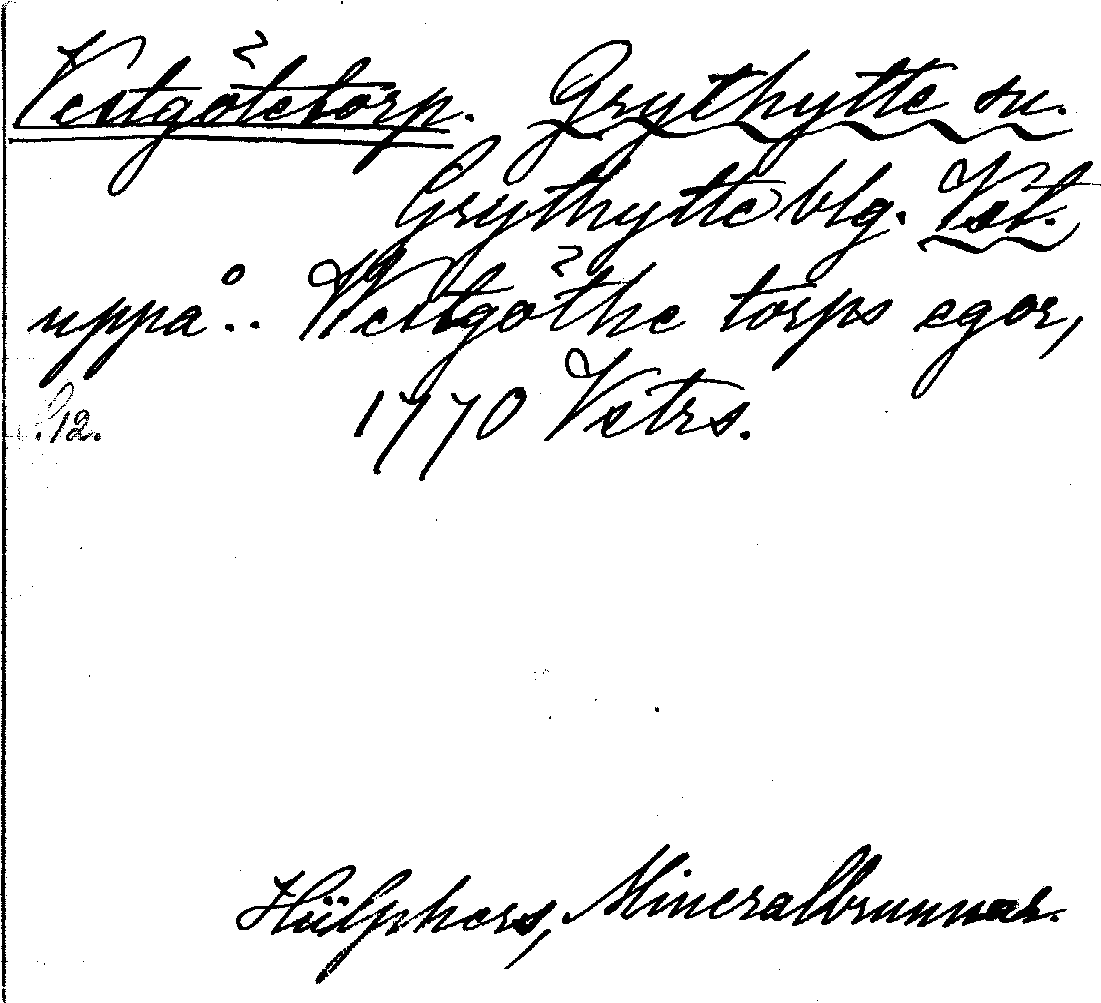 Vestgötetorp. Grythytte sn.
Grythytte blg. Vstl.
uppå.. Westgöthe torps egor,
S.12. 1770 Vetrs.
Hülphers, Mineralbrunnar.